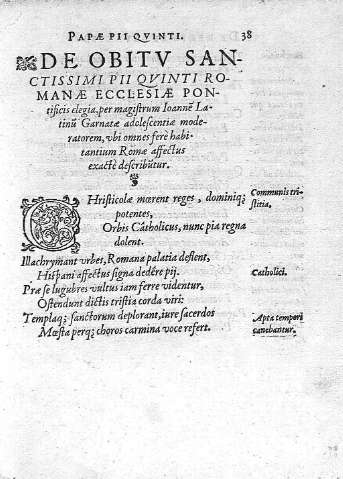 PAPÆ PII QVINTI. 38
DE OBITV SAN-
CTISSIMI PII QVINTI RO-
MANÆ ECCLESIÆ PON-
tificis elegia, per magistrum Ioannē La-
tinū Garnatæ adolescentiæ mode-
ratorem, vbi omnes ferè habi-
tantium Romæ affectus
exactè describūtur.
CHristicolæ mœrent reges, dominiq; Communis tri-
potentes, stitia.
Orbis Catholicus, nunc pia regna
dolent.
Illachrymant vrbes, Romana palatia deflent,
Hispani affectus signa dedêre pij. Catholici.
Præ se lugubres vultus iam ferre videntur,
Ostendunt dictis tristia corda viri:
Templaq; sanctorum deplorant, iure sacerdos Apta tempori
Mœsta perq; choros carmina voce refert. canebantur.